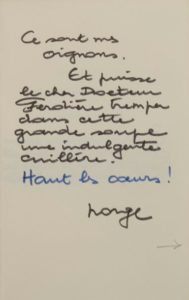 Ce sont mes
oignons.
Et puisse
le cher Docteur
Ferdière tremper
dans cette
grande soupe
une indulgente
cuillère.
Haut les cœurs !
Norge